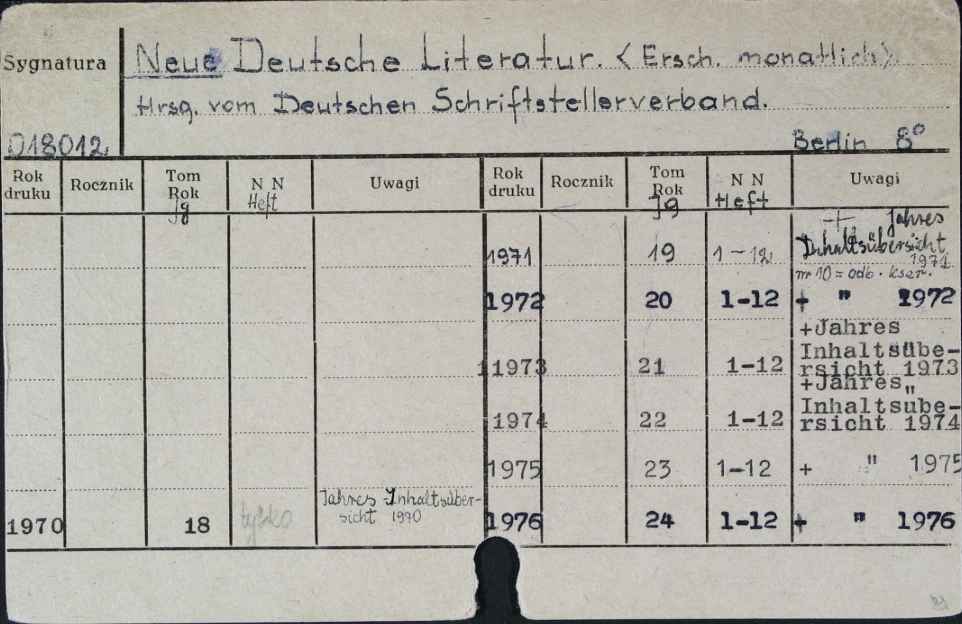 Sygnatura
Neue Deutsche Literatur. <Ersch. monatlich>
Hrsg. vom Deutschen Schriftstellerverband.
018012
Berlin 8°
Rok druku Rocznik Tom Rok Jg N N Heft Uwagi Rok druku Rocznik Tom Rok Jg N N Heft Uwagi
1971 19 1-12 + Jahres
Inhaltsübersicht
1971
nr 10 = odb. kser.
1972 20 1-12 + " 1972
+Jahres
Inhaltsübe-
11973 21 1-12 rsicht 1973
+Jahres"
Inhaltsube-
1974 22 1-12 rsicht 1974
1975 23 1-12 + " 1975
1970 18 tylko Jahres Inhaltsüber-
sicht 1970
1976 24 1-12 + " 1976